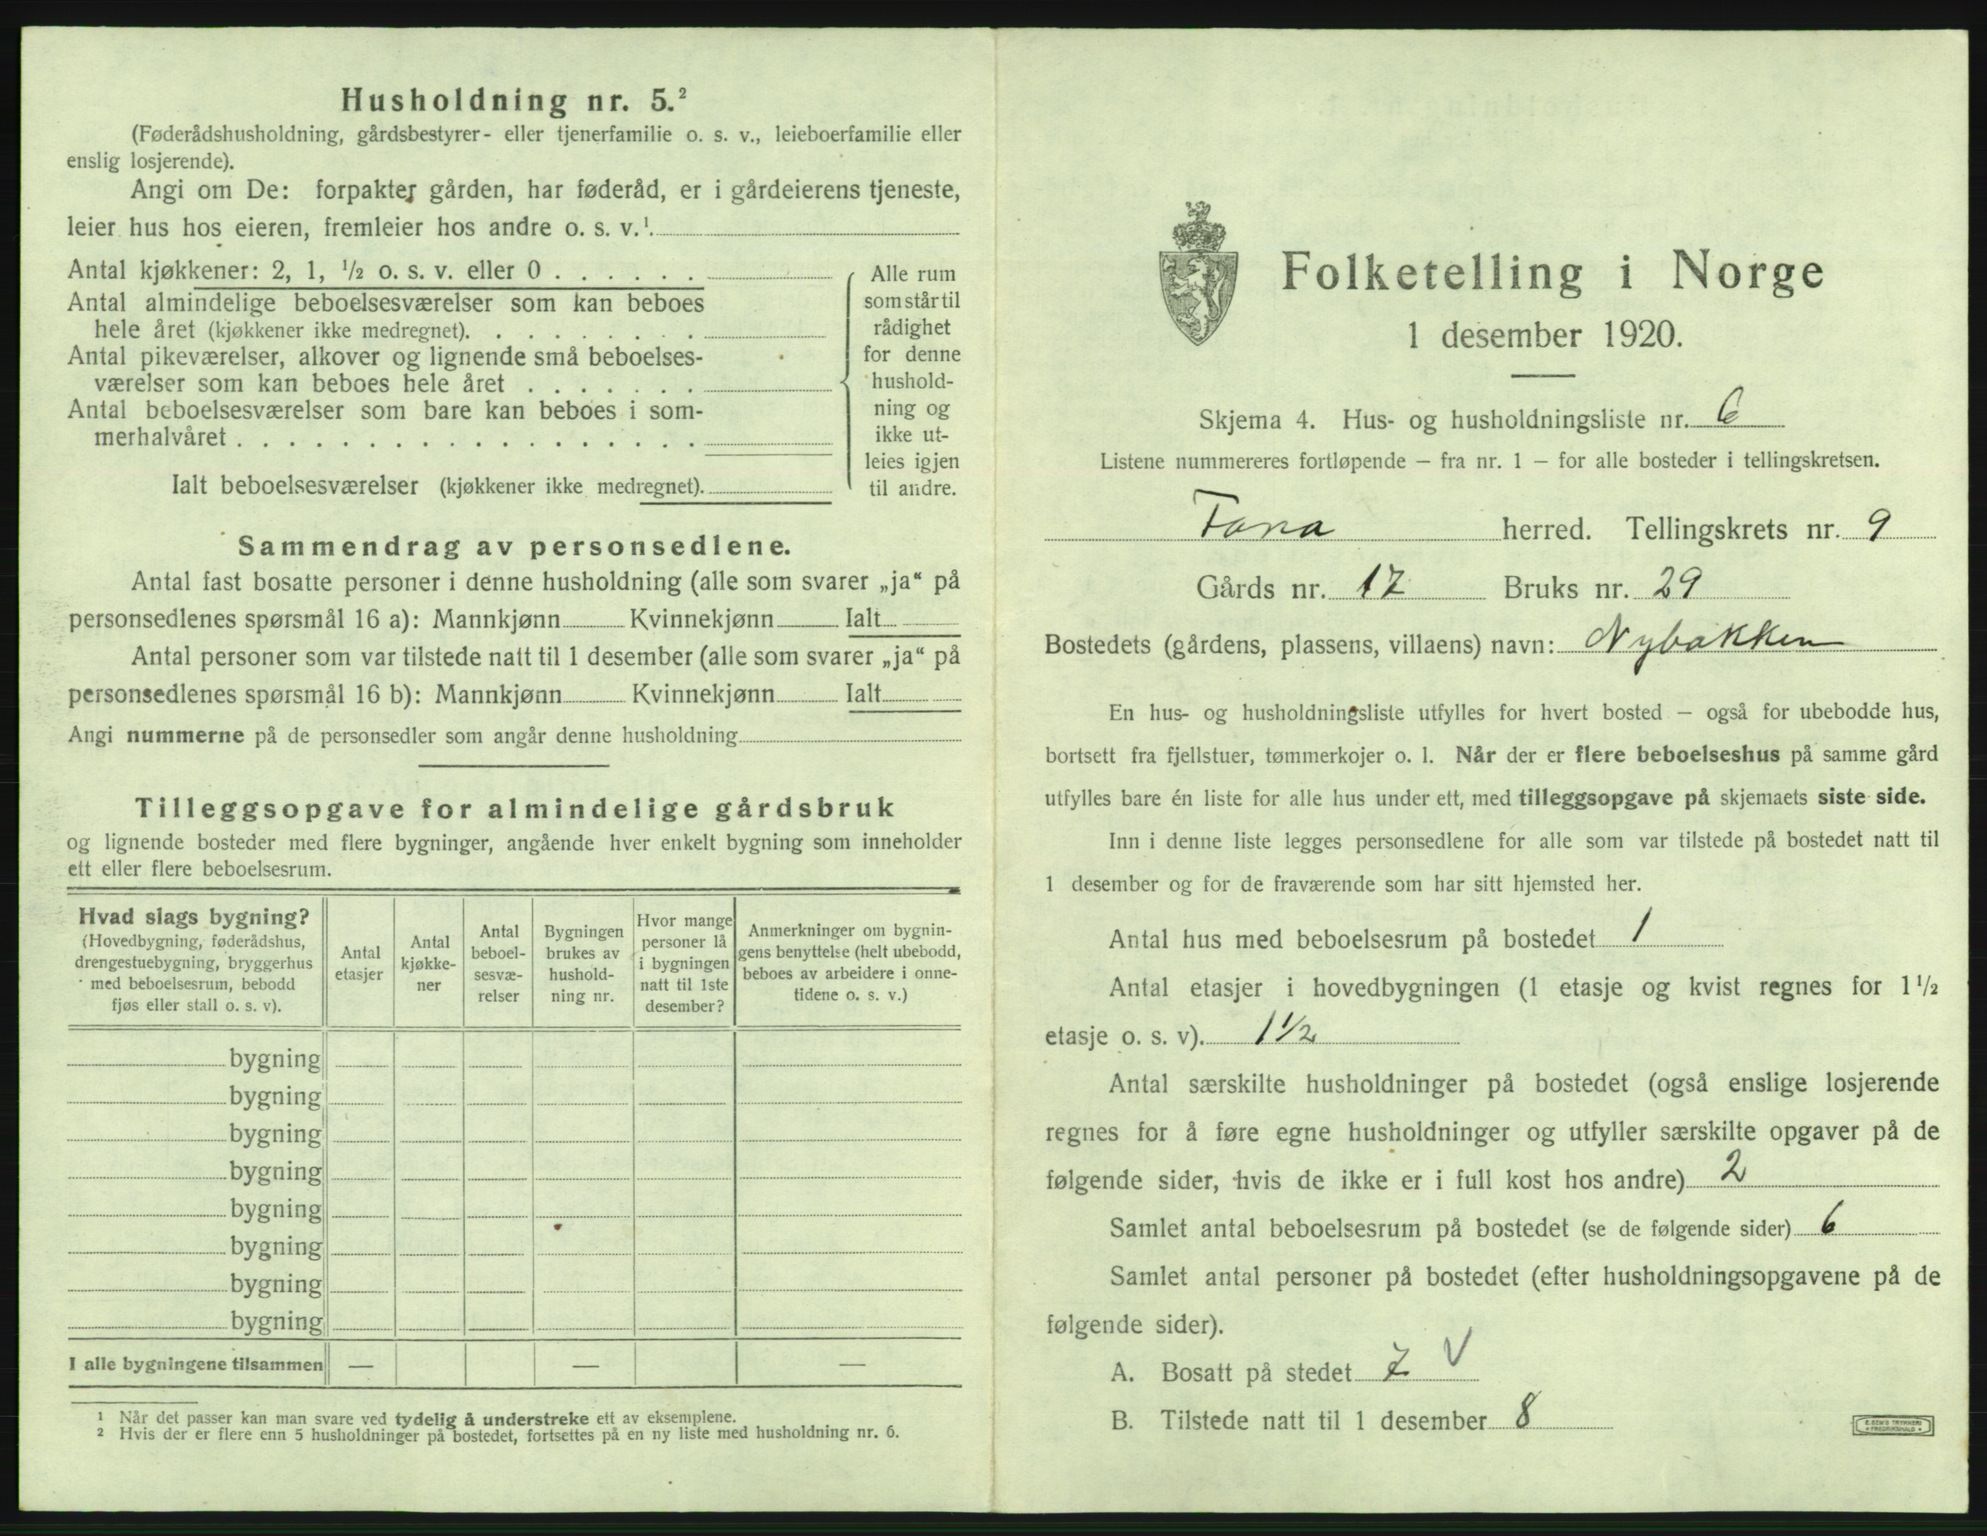 Husholdning nr. 5.²
(Føderådshusholdning, gårdsbestyrer- eller tjenerfamilie o. s. v., leieboerfamilie eller
enslig losjerende).
Angi om De: forpakter gården, har føderåd, er i gårdeierens tjeneste,
leier hus hos eieren, fremleier hos andre o. s. v.¹.
Antal kjøkkener: 2, 1, ½ o. s. v. eller 0 . . . . . .
Antal almindelige beboelsesværelser som kan beboes
hele året (kjøkkener ikke medregnet). . . . . . . . .
Antal pikeværelser, alkover og lignende små beboelses-
værelser som kan beboes hele året . . . . . . .
Antal beboelsesværelser som bare kan beboes i som-
merhalvåret . . . . . . . . . . . . . . . . . .
Ialt beboelsesværelser (kjøkkener ikke medregnet).
Alle rum
som står til
rådighet
for denne
hushold-
ning og
ikke ut-
leies igjen
til andre.
Sammendrag av personsedlene.
Antal fast bosatte personer i denne husholdning (alle som svarer „ja“ på
personsedlenes spørsmål 16 a): Mannkjønn Kvinnekjønn Ialt
Antal personer som var tilstede natt til 1 desember (alle som svarer „ja“ på
personsedlenes spørsmål 16 b): Mannkjønn Kvinnekjønn Ialt
Angi nummerne på de personsedler som angår denne husholdning
Tilleggsopgave for almindelige gårdsbruk
og lignende bosteder med flere bygninger, angående hver enkelt bygning som inneholder
ett eller flere beboelsesrum.
Hvad slags bygning?
(Hovedbygning, føderådshus,
drengestuebygning, bryggerhus
med beboelsesrum, bebodd
fjøs eller stall o. s. v).
Antal
etasjer
Antal
kjøkke-
ner
Antal
beboel-
sesvæ-
relser
Bygningen
brukes av
hushold-
ning nr.
Hvor mange
personer lå
i bygningen
natt til 1ste
desember?
Anmerkninger om bygnin-
gens benyttelse (helt ubebodd,
beboes av arbeidere i onne-
tidene o. s. v.)
bygning
bygning
bygning
bygning
bygning
bygning
bygning
bygning
I alle bygningene tilsammen — — —
¹ Når det passer kan man svare ved tydelig å understreke ett av eksemplene.
² Hvis der er flere enn 5 husholdninger på bostedet, fortsettes på en ny liste med husholdning nr. 6.
Folketelling i Norge
1 desember 1920.
Skjema 4. Hus- og husholdningsliste nr. 6
Listene nummereres fortløpende — fra nr. 1 — for alle bosteder i tellingskretsen.
Fana herred. Tellingskrets nr. 9
Gårds nr. 17 Bruks nr. 29
Bostedets (gårdens, plassens, villaens) navn: Nybakken
En hus- og husholdningsliste utfylles for hvert bosted — også for ubebodde hus,
bortsett fra fjellstuer, tømmerkojer o. l. Når der er flere beboelseshus på samme gård
utfylles bare én liste for alle hus under ett, med tilleggsopgave på skjemaets siste side.
Inn i denne liste legges personsedlene for alle som var tilstede på bostedet natt til
1 desember og for de fraværende som har sitt hjemsted her.
Antal hus med beboelsesrum på bostedet 1
Antal etasjer i hovedbygningen (1 etasje og kvist regnes for 1½
etasje o. s. v). 1½
Antal særskilte husholdninger på bostedet (også enslige losjerende
regnes for å føre egne husholdninger og utfyller særskilte opgaver på de
følgende sider, hvis de ikke er i full kost hos andre) 2
Samlet antal beboelsesrum på bostedet (se de følgende sider) 6
Samlet antal personer på bostedet (efter husholdningsopgavene på de
følgende sider).
A. Bosatt på stedet 7 V
B. Tilstede natt til 1 desember 8